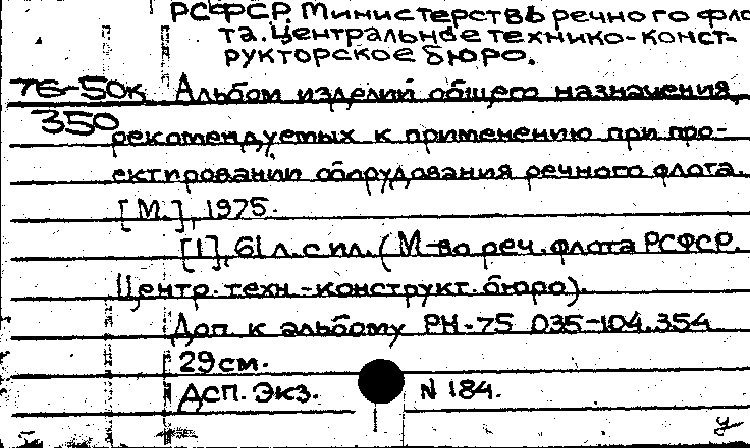 РСФСР. Министерствь речного фло-
та. Центральное технико-конст-
рукторское бюро.
76-50к Альбом изделий общего назначения,
350 рекомендуемых к применению при про-
ектировании оборудования речного флота.
[М.], 1975.
[1], 61 л. с ил. (М-во реч. флота РСФСР.
Центр. техн.-конструкт. бюро).
Доп. к альбому РН-75 035-104.354
29 см.
ДСП. Экз. N 184.
у